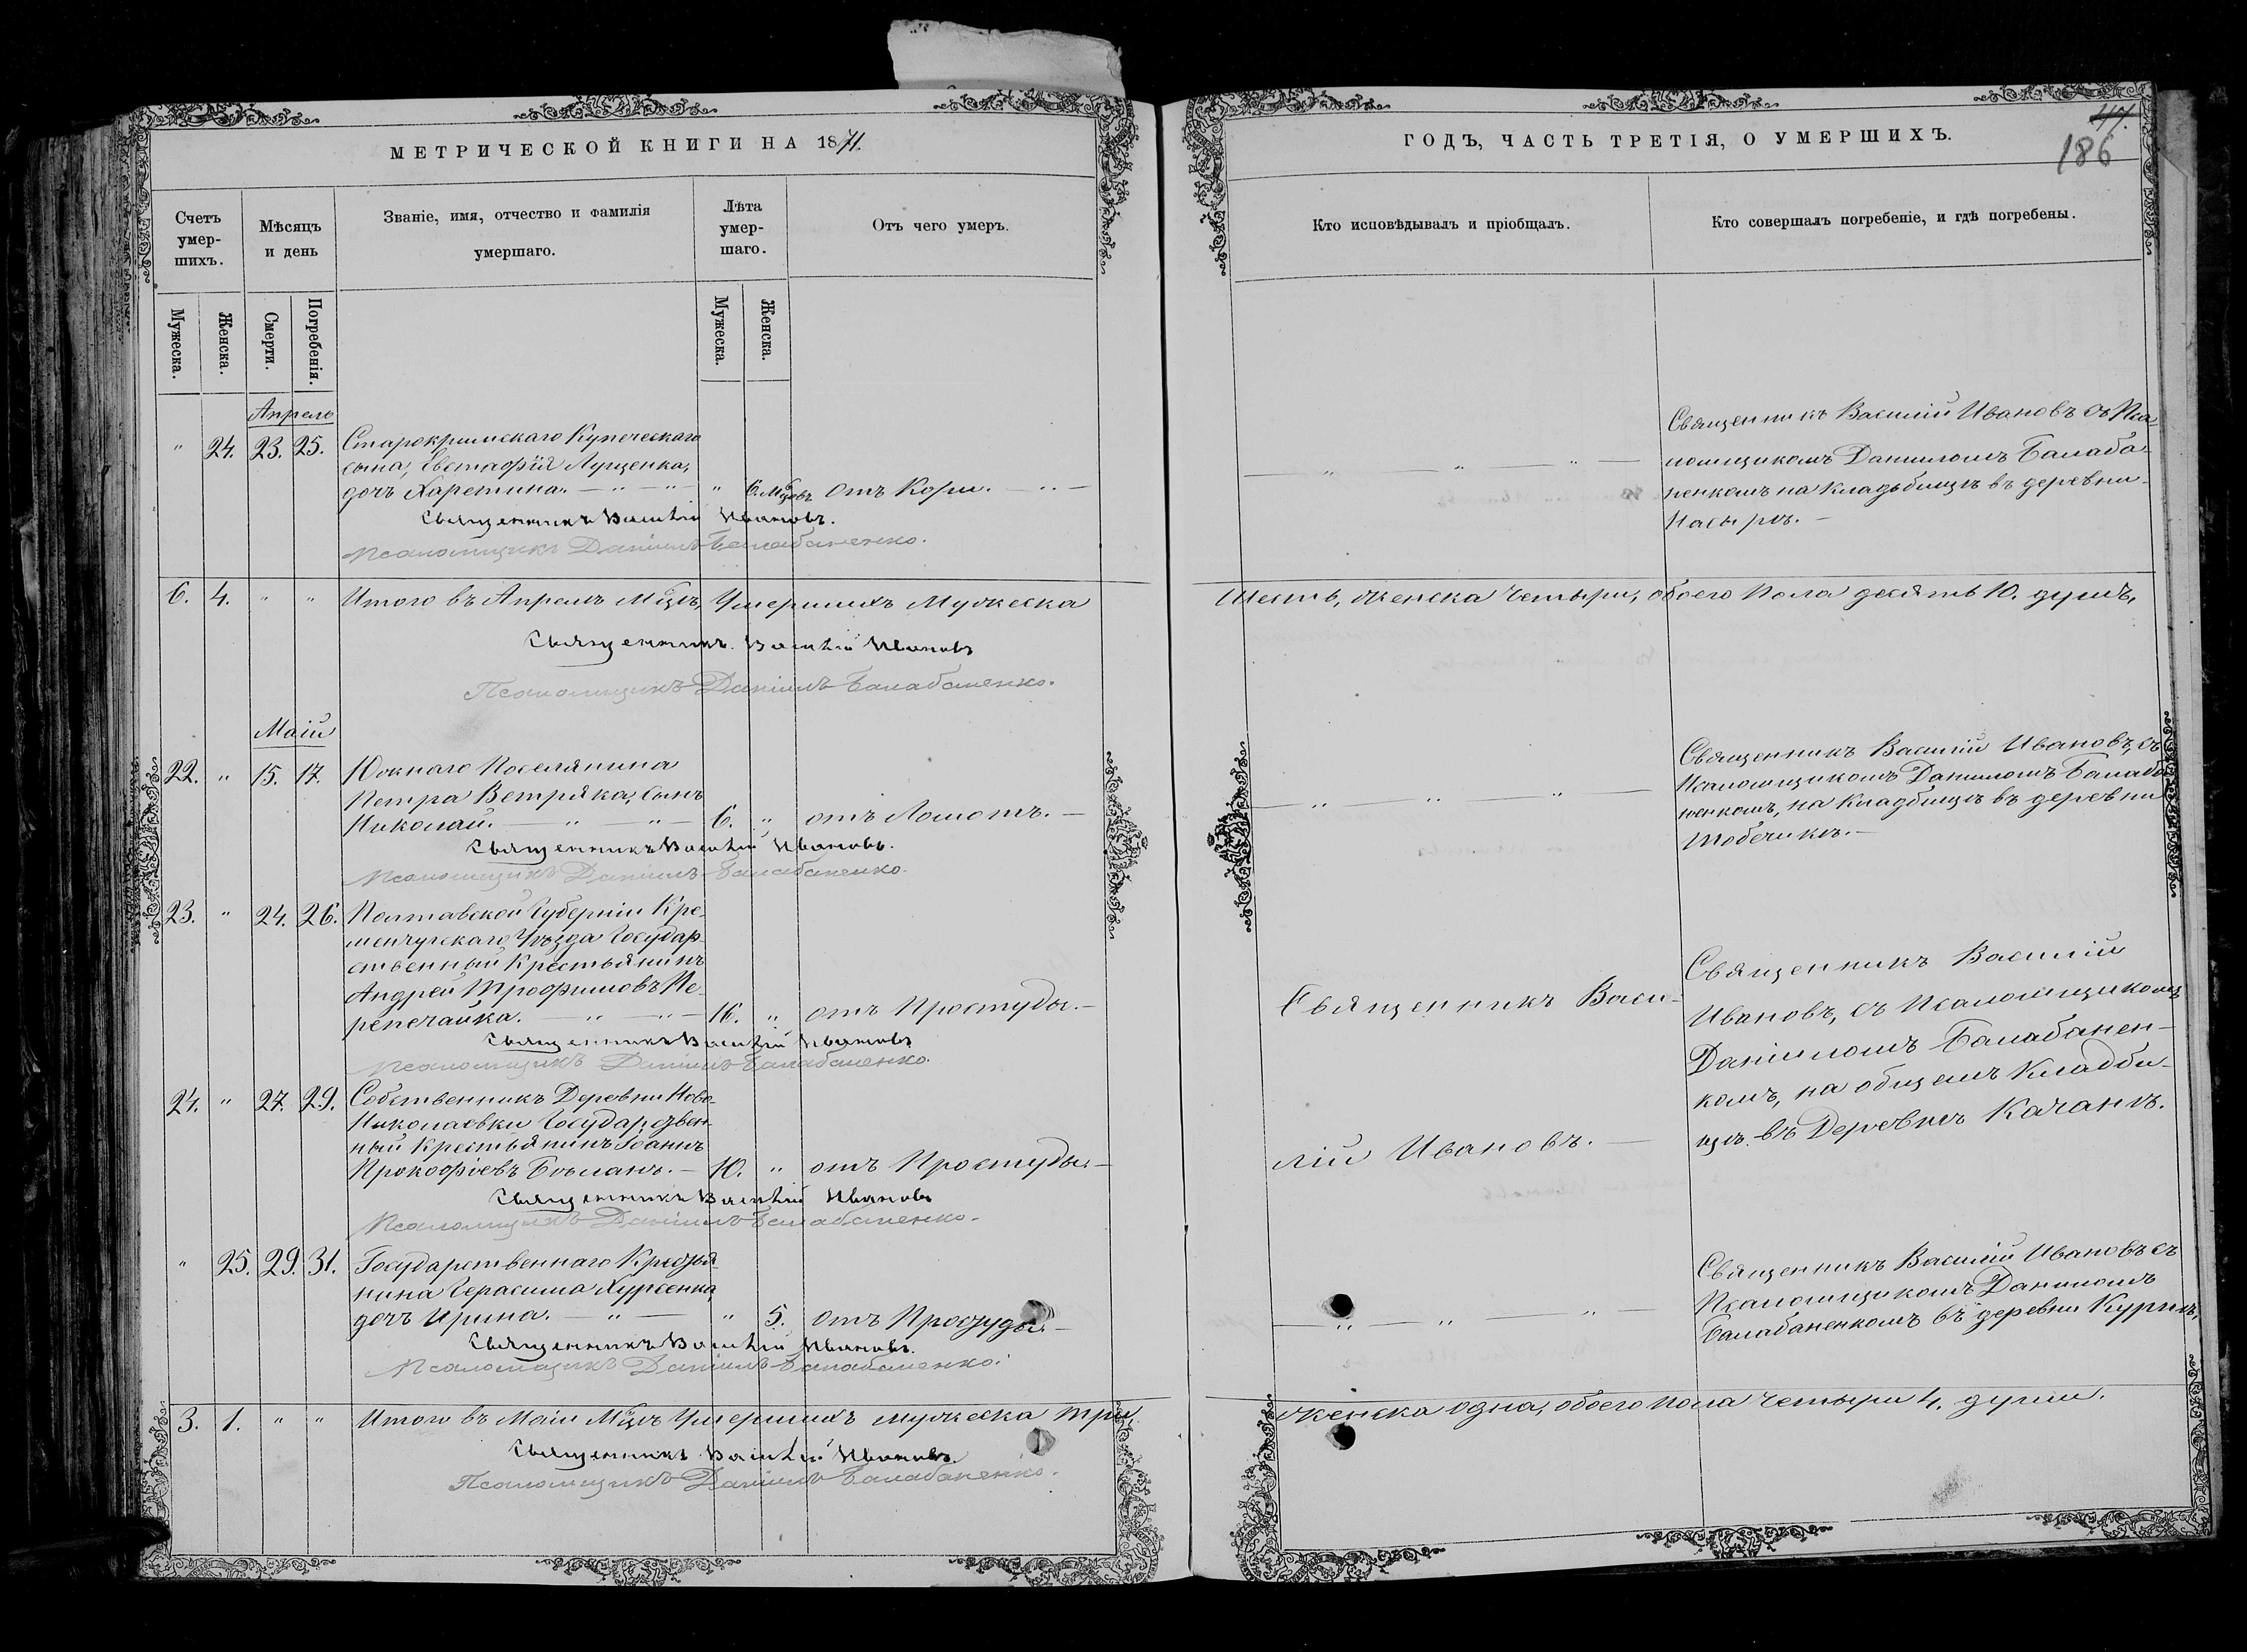 МЕТРИЧЕСКОЙ КНИГИ НА 1871.
Счетъ умер-шихъ.
Мѣсяцъ и день
Званіе, имя, отчество и фамилія умершаго.
Лѣта умер-шаго.
Отъ чего умеръ.
Мужеска.
Женска.
Смерти.
Погребенія.
Мужеска.
Женска.
Апрель
" 24. 23. 25. Старокримскаго Купеческаго
сына, Евстафія Лущенка,
дочъ Харетина. — " — " — " 6. Мцовъ отъ Кори. — " —
Священникъ Василій Ивановъ.
Псаломщикъ Даніилъ Балабаненко.
6. 4. " " Итого въ Апрелѣ Мцѣ, Умершихъ Мужеска
Священникъ. Василій Ивановъ
Псаломщикъ Даніилъ Балабаненко.
Маій
22. " 15. 17. Южнаго Поселянина
Петра Ветряка, сынъ
Николай. — " — " — 6. " отъ Ломотъ. —
Священникъ Василій Ивановъ.
Псаломщикъ Даніилъ Балабаненко.
23. " 24. 26. Полтавской Губерніи Кре-
менчугскаго Уѣзда Государ-
ственный Крестьянинъ
Андрей Трофимовъ Пе-
репечайка. — " — " — 16. " отъ Простуды. —
Священникъ Василій Ивановъ
Псаломщикъ Даніилъ Балабаненко.
24. " 27. 29. Собственникъ Деревни Ново-
Николаевки Государствен-
ный Крестьянинъ Іоаннъ
Прокофіевъ — 10. " отъ Простуды. —
Священникъ Василій Ивановъ
Псаломщикъ Даніилъ Балабаненко.
" 25. 29. 31. Государственнаго Крестья-
нина Герасима Хурсенка,
дочъ Ирина. — " — " 5. отъ Простуды. —
Священникъ Василій Ивановъ.
Псаломщикъ Даніилъ Балабаненко.
3. 1. " " Итого въ Маіи Мцѣ Умершихъ мужеска три,
Священникъ Василій Ивановъ.
Псаломщикъ Даніилъ Балабаненко.
ГОДЪ, ЧАСТЬ ТРЕТІЯ, О УМЕРШИХЪ.
47.
186
Кто исповѣдывалъ и пріобщалъ.
Кто совершалъ погребеніе, и гдѣ погребены.
Священникъ Василій Ивановъ съ Пса-
ломщикомъ Даниломъ Балаба-
ненкомъ на Кладьбищѣ въ деревни
Насырѣ. —
Шесть, Женска Четыри, обоего Пола десять 10. душъ,
Священникъ Василій Ивановъ, съ
Псаломщикомъ Даниломъ Балаба-
ненкомъ, на Кладбищѣ въ деревни
Тобечикѣ. —
Священникъ Васи-
лій Ивановъ. —
Священникъ Василій
Ивановъ, съ Псаломщикомъ
Даніиломъ Балабанен-
комъ, на общемъ Кладби-
щѣ въ Деревнѣ Качанѣ.
Священникъ Василій Ивановъ съ
Псаломщикомъ Даниломъ
Балабаненкомъ въ деревни
Женска одна, обоего пола Четыри 4. души.